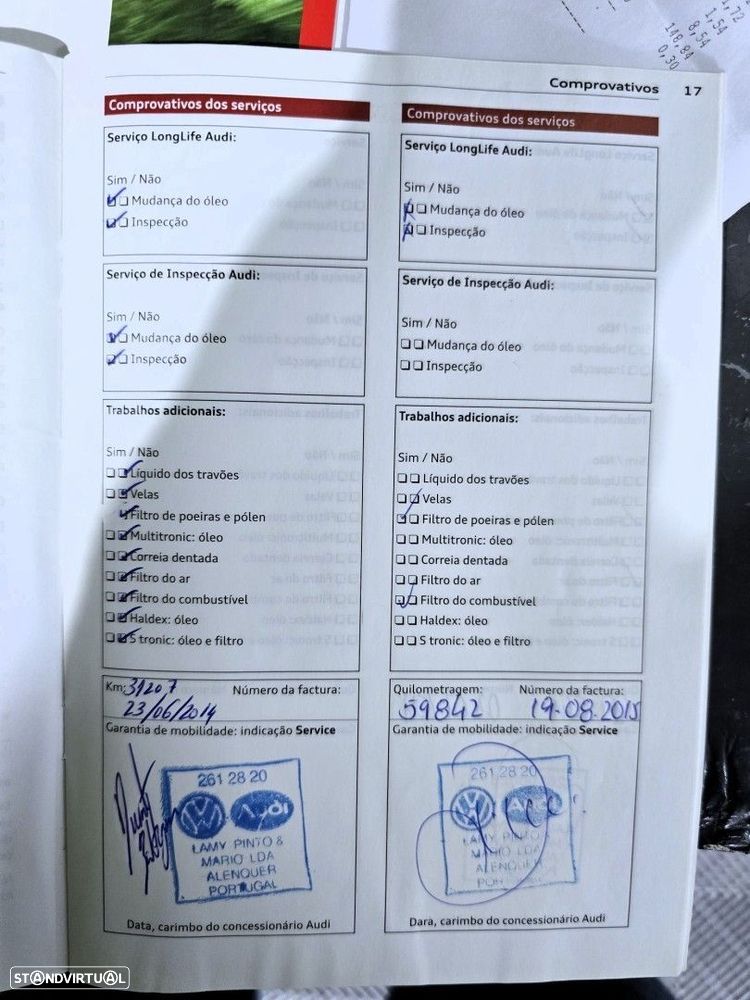 148,84
8,54
1,54
1,72
0,30
Comprovativos 17
Comprovativos dos serviços
Serviço LongLife Audi:
Sim / Não
Mudança do óleo
Inspecção
Serviço de Inspecção Audi:
Sim / Não
Mudança do óleo
Inspecção
Trabalhos adicionais:
Sim / Não
Líquido dos travões
Velas
Filtro de poeiras e pólen
Multitronic: óleo
Correia dentada
Filtro do ar
Filtro do combustível
Haldex: óleo
S tronic: óleo e filtro
Km: 31207 Número da factura:
23/06/2014
Garantia de mobilidade: indicação Service
261 28 20
Audi
LAMY PINTO &
MARIO LDA
ALENQUER
PORTUGAL
Data, carimbo do concessionário Audi
Comprovativos dos serviços
Serviço LongLife Audi:
Sim / Não
Mudança do óleo
Inspecção
Serviço de Inspecção Audi:
Sim / Não
Mudança do óleo
Inspecção
Trabalhos adicionais:
Sim / Não
Líquido dos travões
Velas
Filtro de poeiras e pólen
Multitronic: óleo
Correia dentada
Filtro do ar
Filtro do combustível
Haldex: óleo
S tronic: óleo e filtro
Quilometragem: Número da factura:
59842 19.08.2015
Garantia de mobilidade: indicação Service
261 28 20
LAMY PINTO &
MARIO LDA
ALENQUER
PORTUGAL
Data, carimbo do concessionário Audi
STANDVIRTUAL